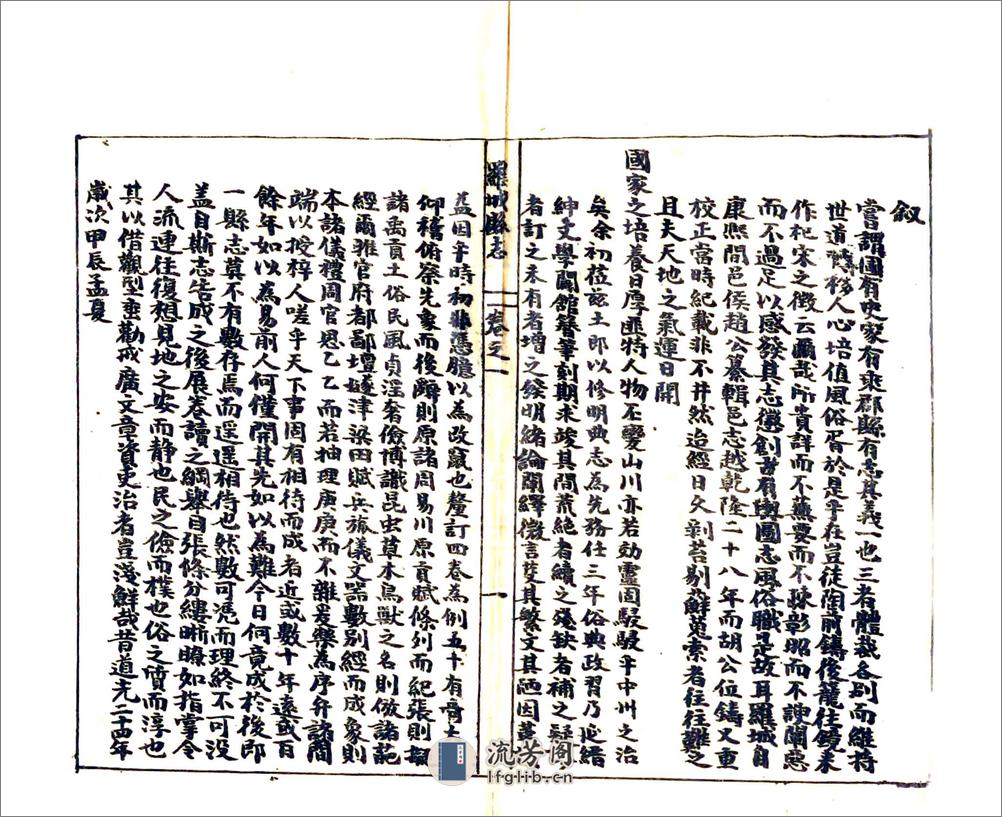 叙
嘗謂國有史家有乘郡縣有志其義一也三者體裁各別而維持
世道轉移人心培值風俗胥於是乎在豈徒陶前鑄後籠往鏡来
作杞宋之徴云爾哉所貴詳而不蕪要而不疎彰昭而不諛闡惡
而不過足以感發其志懲創者有輿圖志風俗職是故耳羅城自
康熙間邑侯趙公纂輯邑志越乾隆二十八年而胡公位鑄又重
校正當時紀載非不井然迨經日久剥苔剔蘚蒐索者往往難之
且夫天地之氣運日開
國家之培養日厚匪特人物丕變山川亦若効靈固駸駸乎中州之治
矣余初莅兹土即以修明典志為先務任三年俗典政習乃延縉
紳文學闢館簪筆刻期求竣其間荒絶者續之殘缺者補之疑
者訂之未有者增之發明緒論闡繹微言芟其繁文其陋因
羅城縣志 卷之一 一
益因乎時初非憑臆以為改竄也釐訂四卷為例五十有
仰稽俯察先象而後躔則原諸周易川原貢賦條列而紀張則
諸禹貢土俗民風貞淫奢儉博識昆虫草木鳥獸之名則倣諸
經爾雅官府都鄙壇墜津梁田賦兵旅儀文器數别經而成象則
本諸儀禮周官思乙乙而若抽理庚庚而不雜爰藥為序弁諸
端以授梓人嗟乎天下事固有相待而成者近或數十年遠或百
餘年如以為易前人何僅開其先如以為難今日何竟成於後即
一縣志莫不有數存焉而遥遥相待也然數可凴而理終不可没
盖自斯志告成之後展卷讀之綱舉目張條分縷晰瞭如指掌令
人流連往復想見地之安而靜也民之儉而樸也俗之噴而淳也
其以借觀型垂勸戒廣文章資吏治者豈淺鮮哉昔道光二十四年
歲次甲辰孟夏
流芳阁
lfglib.cn